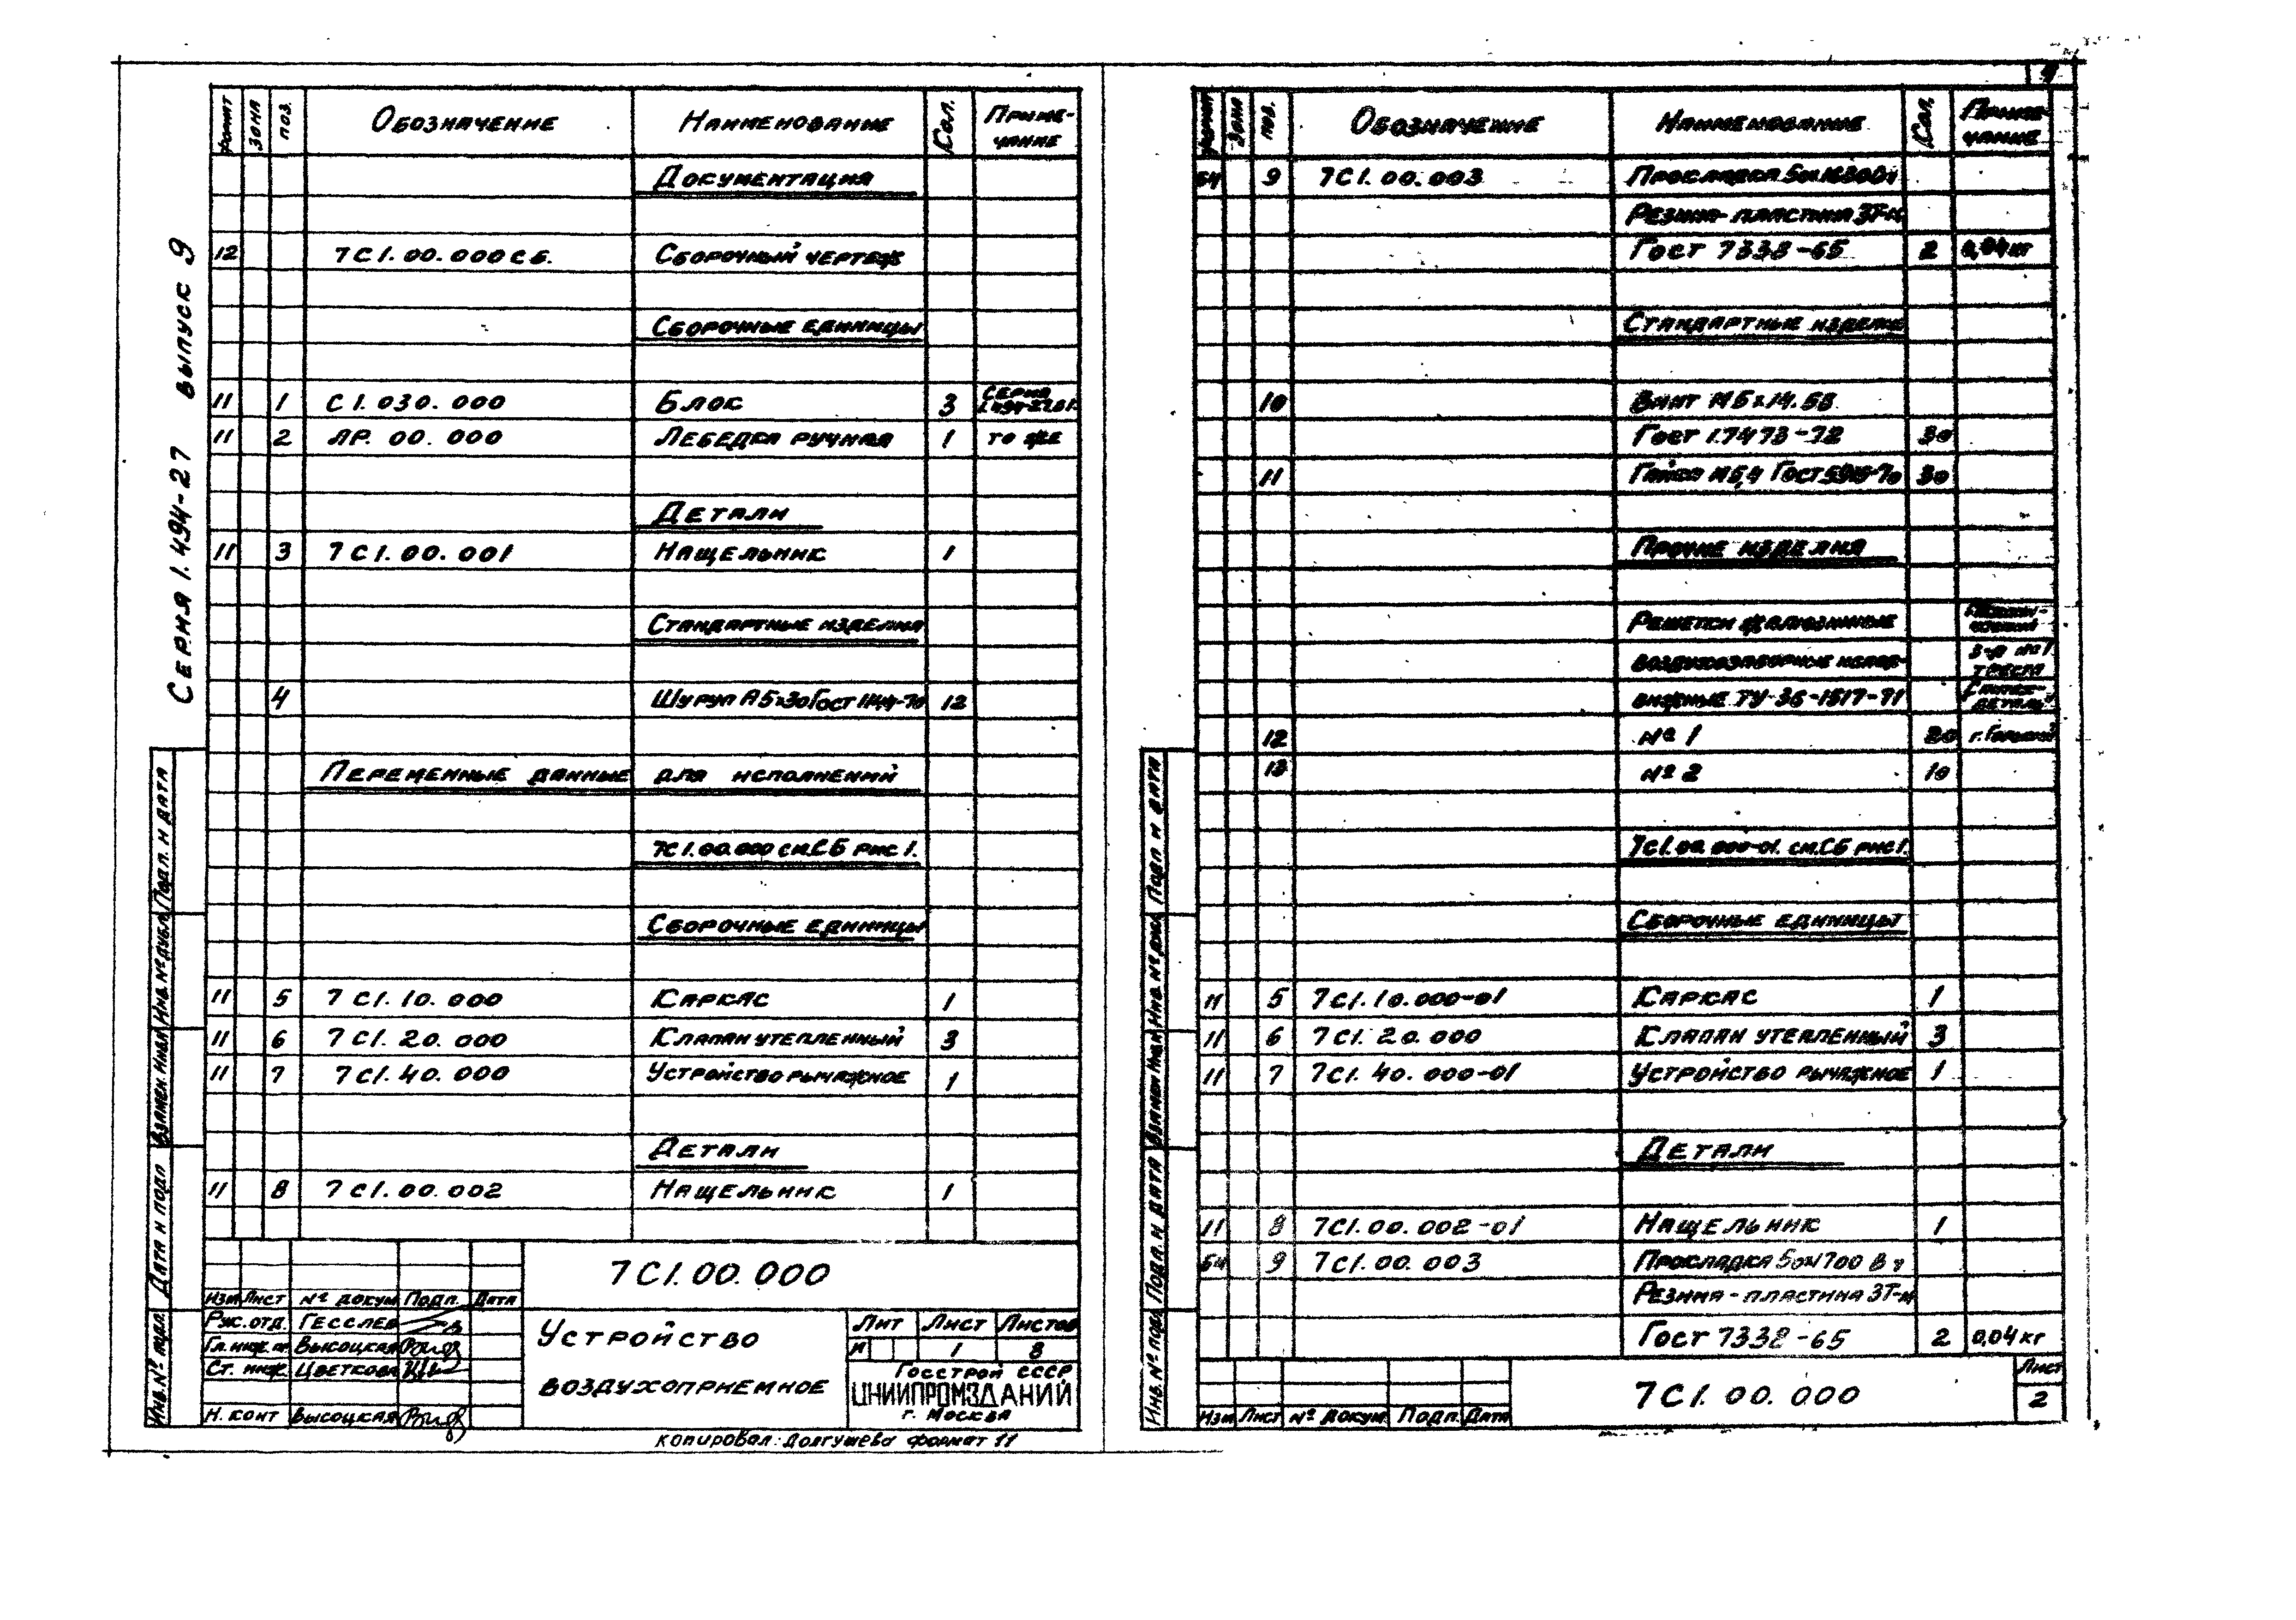 Серия 1.494-27 выпуск 9
Формат Зона Поз. Обозначение Наименование Кол. Примечание
Документация
12 7С1.00.000СБ. Сборочный чертеж
Сборочные единицы
11 1 С1.030.000 Блок 3 Серия
11 2 ЛР.00.000 Лебедка ручная 1 то же
Детали
11 3 7С1.00.001 Нащельник 1
Стандартные изделия
4 Шуруп А5х30 Гост 1144-70 12
Переменные данные для исполнений
7С1.00.000 см.СБ рис 1.
Сборочные единицы
11 5 7С1.10.000 Каркас 1
11 6 7С1.20.000 Клапан утепленный 3
11 7 7С1.40.000 Устройство рычажное 1
Детали
11 8 7С1.00.002 Нащельник 1
Подп. и дата
Инв. № дубл
Взамен. Инв.№
Дата и подп
Инв. № подл.
7С1.00.000
Изм Лист № докум Подп. Дата
Рук. отд. Гесслер
Гл. инж. пр. Высоцкая
Ст. инж. Цветкова
Н. конт Высоцкая
Устройство
воздухоприемное
Лит Лист Листов
И 1 8
Госстрой СССР
ЦНИИПРОМЗДАНИЙ
г. Москва
копировал: Долгушева формат 11
Формат Зона Поз. Обозначение Наименование Кол. Примечание
Б4 9 7С1.00.003 Прокладка
Резина-пластина 3Т-м
Гост 7338-65 2 0,04кг
Стандартные изделия
10 Винт М5х14.58
Гост 17473-72 30
11 Гайка М5,4 Гост 5916-70 30
Прочие изделия
Решетки жалюзийные
воздухозаборные непод-
вижные ТУ-36-1517-71
з-д №1
треста
деталь"
12 №1 20 г. Горький
13 №2 10
7С1.00.000-01. см.СБ рис 1.
Сборочные единицы
11 5 7С1.10.000-01 Каркас 1
11 6 7С1.20.000 Клапан утепленный 3
11 7 7С1.40.000-01 Устройство рычажное 1
Детали
11 8 7С1.00.002-01 Нащельник 1
Б4 9 7С1.00.003 Прокладка
Резина-пластина 3Т-м
Гост 7338-65 2 0,04кг
Подп и дата
Инв. № дубл
Взамен Инв.№
Подп. и дата
Инв. № подл
Изм Лист № докум. Подп. Дата
7С1.00.000
Лист
2